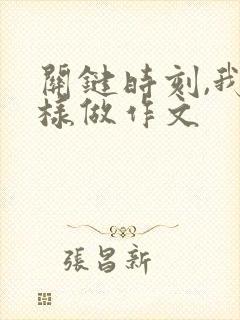 關鍵時刻,我
樣做作文
張昌新